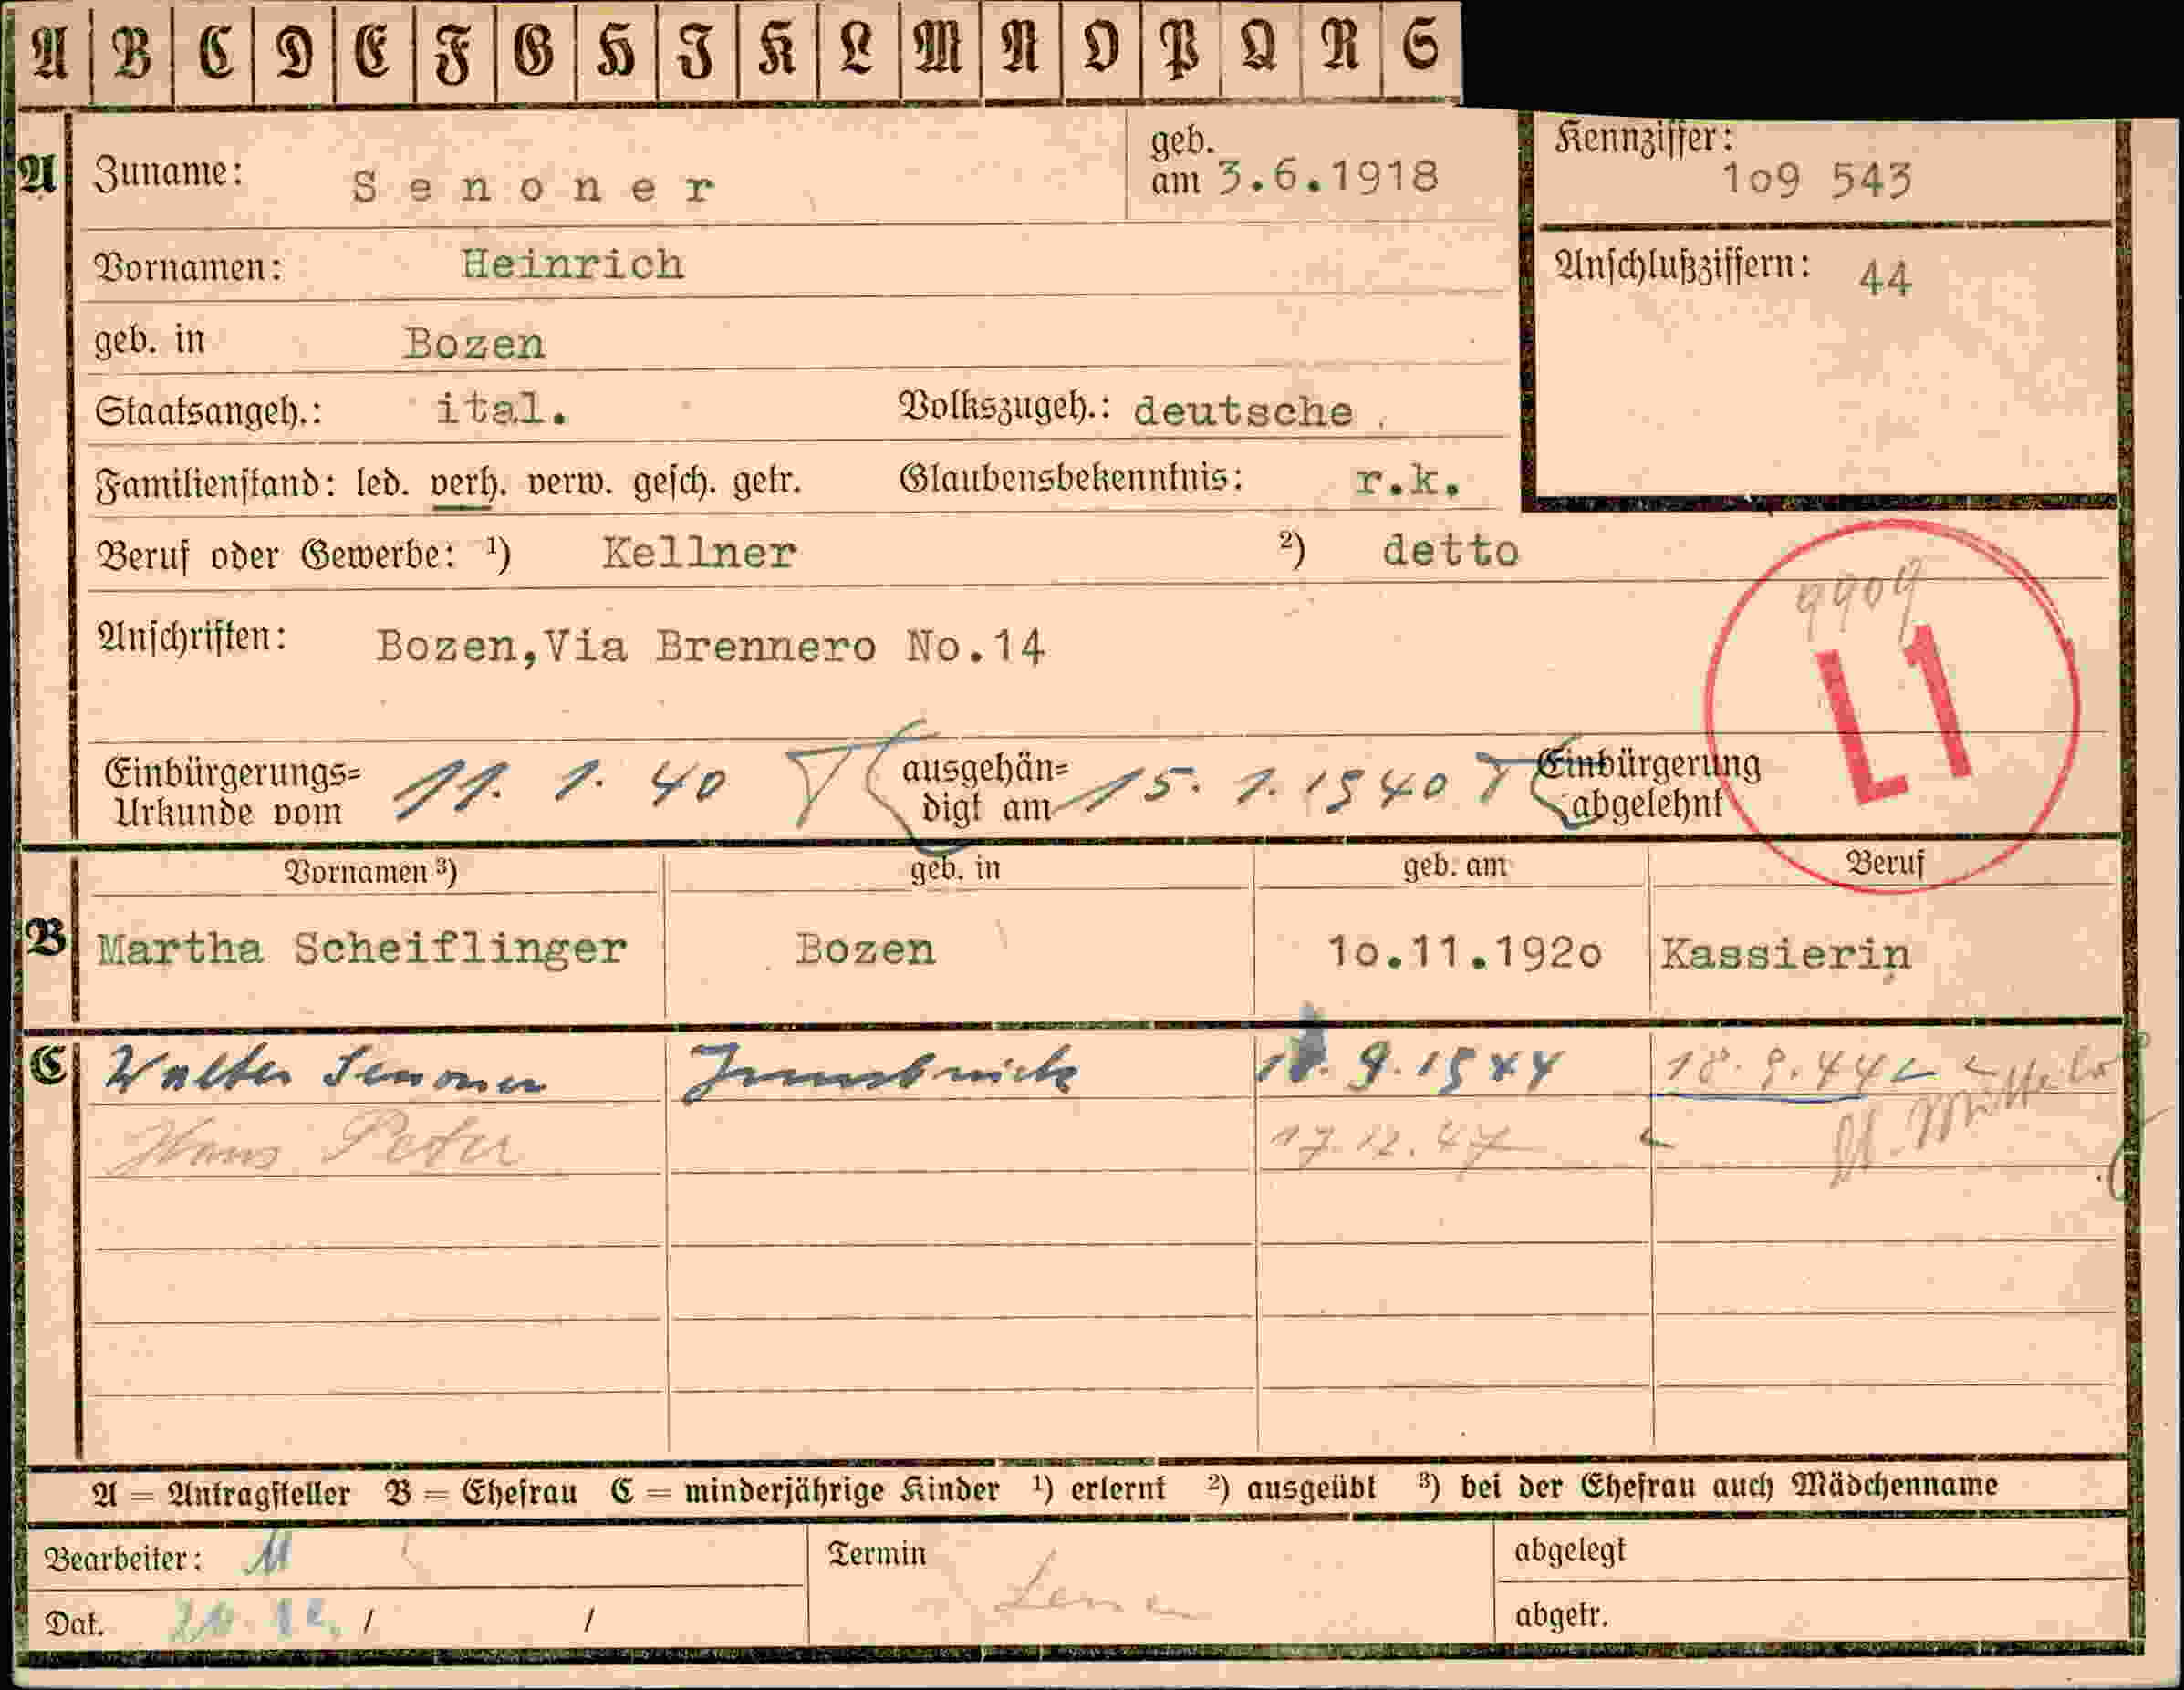 A B C D E F G H J K L M N O P Q R S
A Zuname: Senoner geb. am 3.6.1918 Kennziffer: 1o9 543
Vornamen: Heinrich Anschlußziffern: 44
geb. in Bozen
Staatsangeh.: ital. Volkszugeh.: deutsche
Familienstand: led. verh. verw. gesch. getr. Glaubensbekenntnis: r.k.
Beruf oder Gewerbe: ¹) Kellner ²) detto
9909
L1
Anschriften: Bozen,Via Brennero No.14
Einbürgerungs= Urkunde vom 11. 1. 40 ausgehän= digt am 15. 1. 1940 Einbürgerung abgelehnt
Vornamen ³) geb. in geb. am Beruf
B Martha Scheiflinger Bozen 1o.11.192o Kassierin
C Walter Senoner Innsbruck 18. 9. 1944 18. 9. 44
Hans Peter 17. 12. 47
A = Antragsteller B = Ehefrau C = minderjährige Kinder ¹) erlernt ²) ausgeübt ³) bei der Ehefrau auch Mädchenname
Bearbeiter: Termin abgelegt
Dat. / / abgetr.